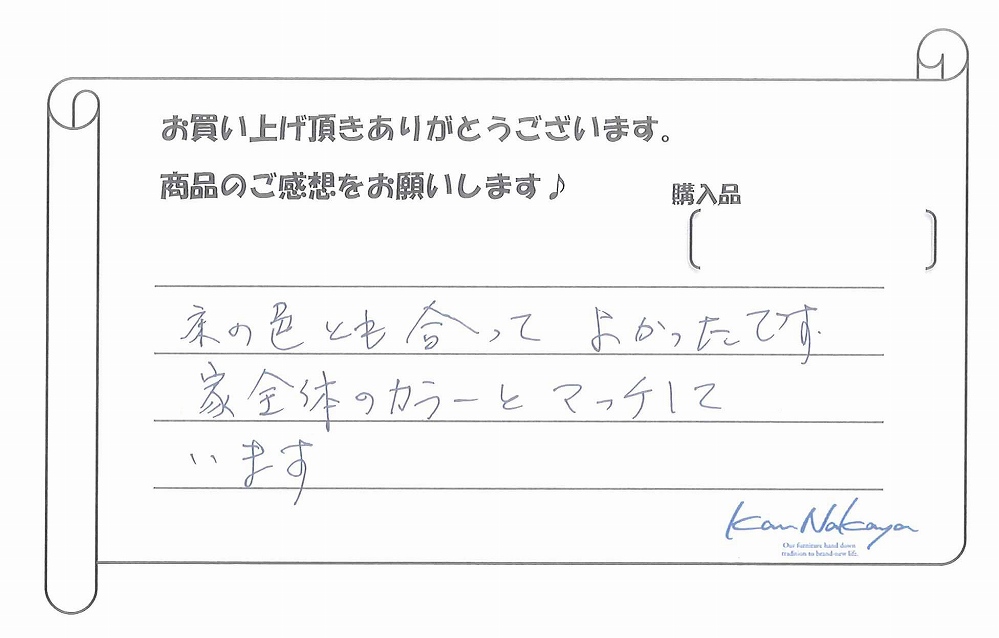 お買い上げ頂きありがとうございます。
商品のご感想をお願いします♪
購入品
床の色とも合って よかったです.
家全体のカラーと マッチして
います
Kan Nakaya
Our furniture hand down
tradition to brand-new life.